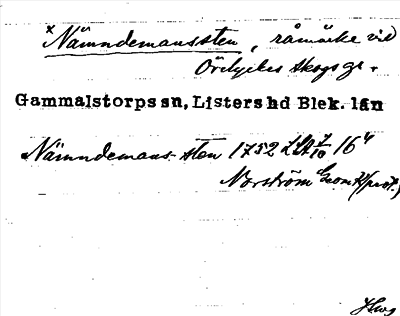 x Nämndemanssten, råmärke vid
Örelyckes skogs gr.
Gammalstorps sn, Listers hd Blek. län
Nämndemans sten 1752 LSA 7/10 16"
Norström Geom. (Kprot.)